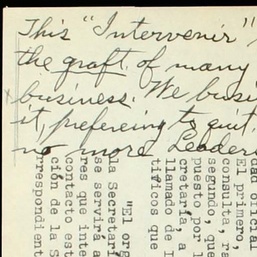 This "Intervenir"
the graft of many
business. We busi
it, prefereing to quit.
no more Leader
dad oficial
El primero,
consulta,
segundo, que
puesto por l
cretaría, a
llamado de I
tíficos que
"El org
la Secretarí
se servirá a
res que inte
contacto est
ción de la S
rrespondient